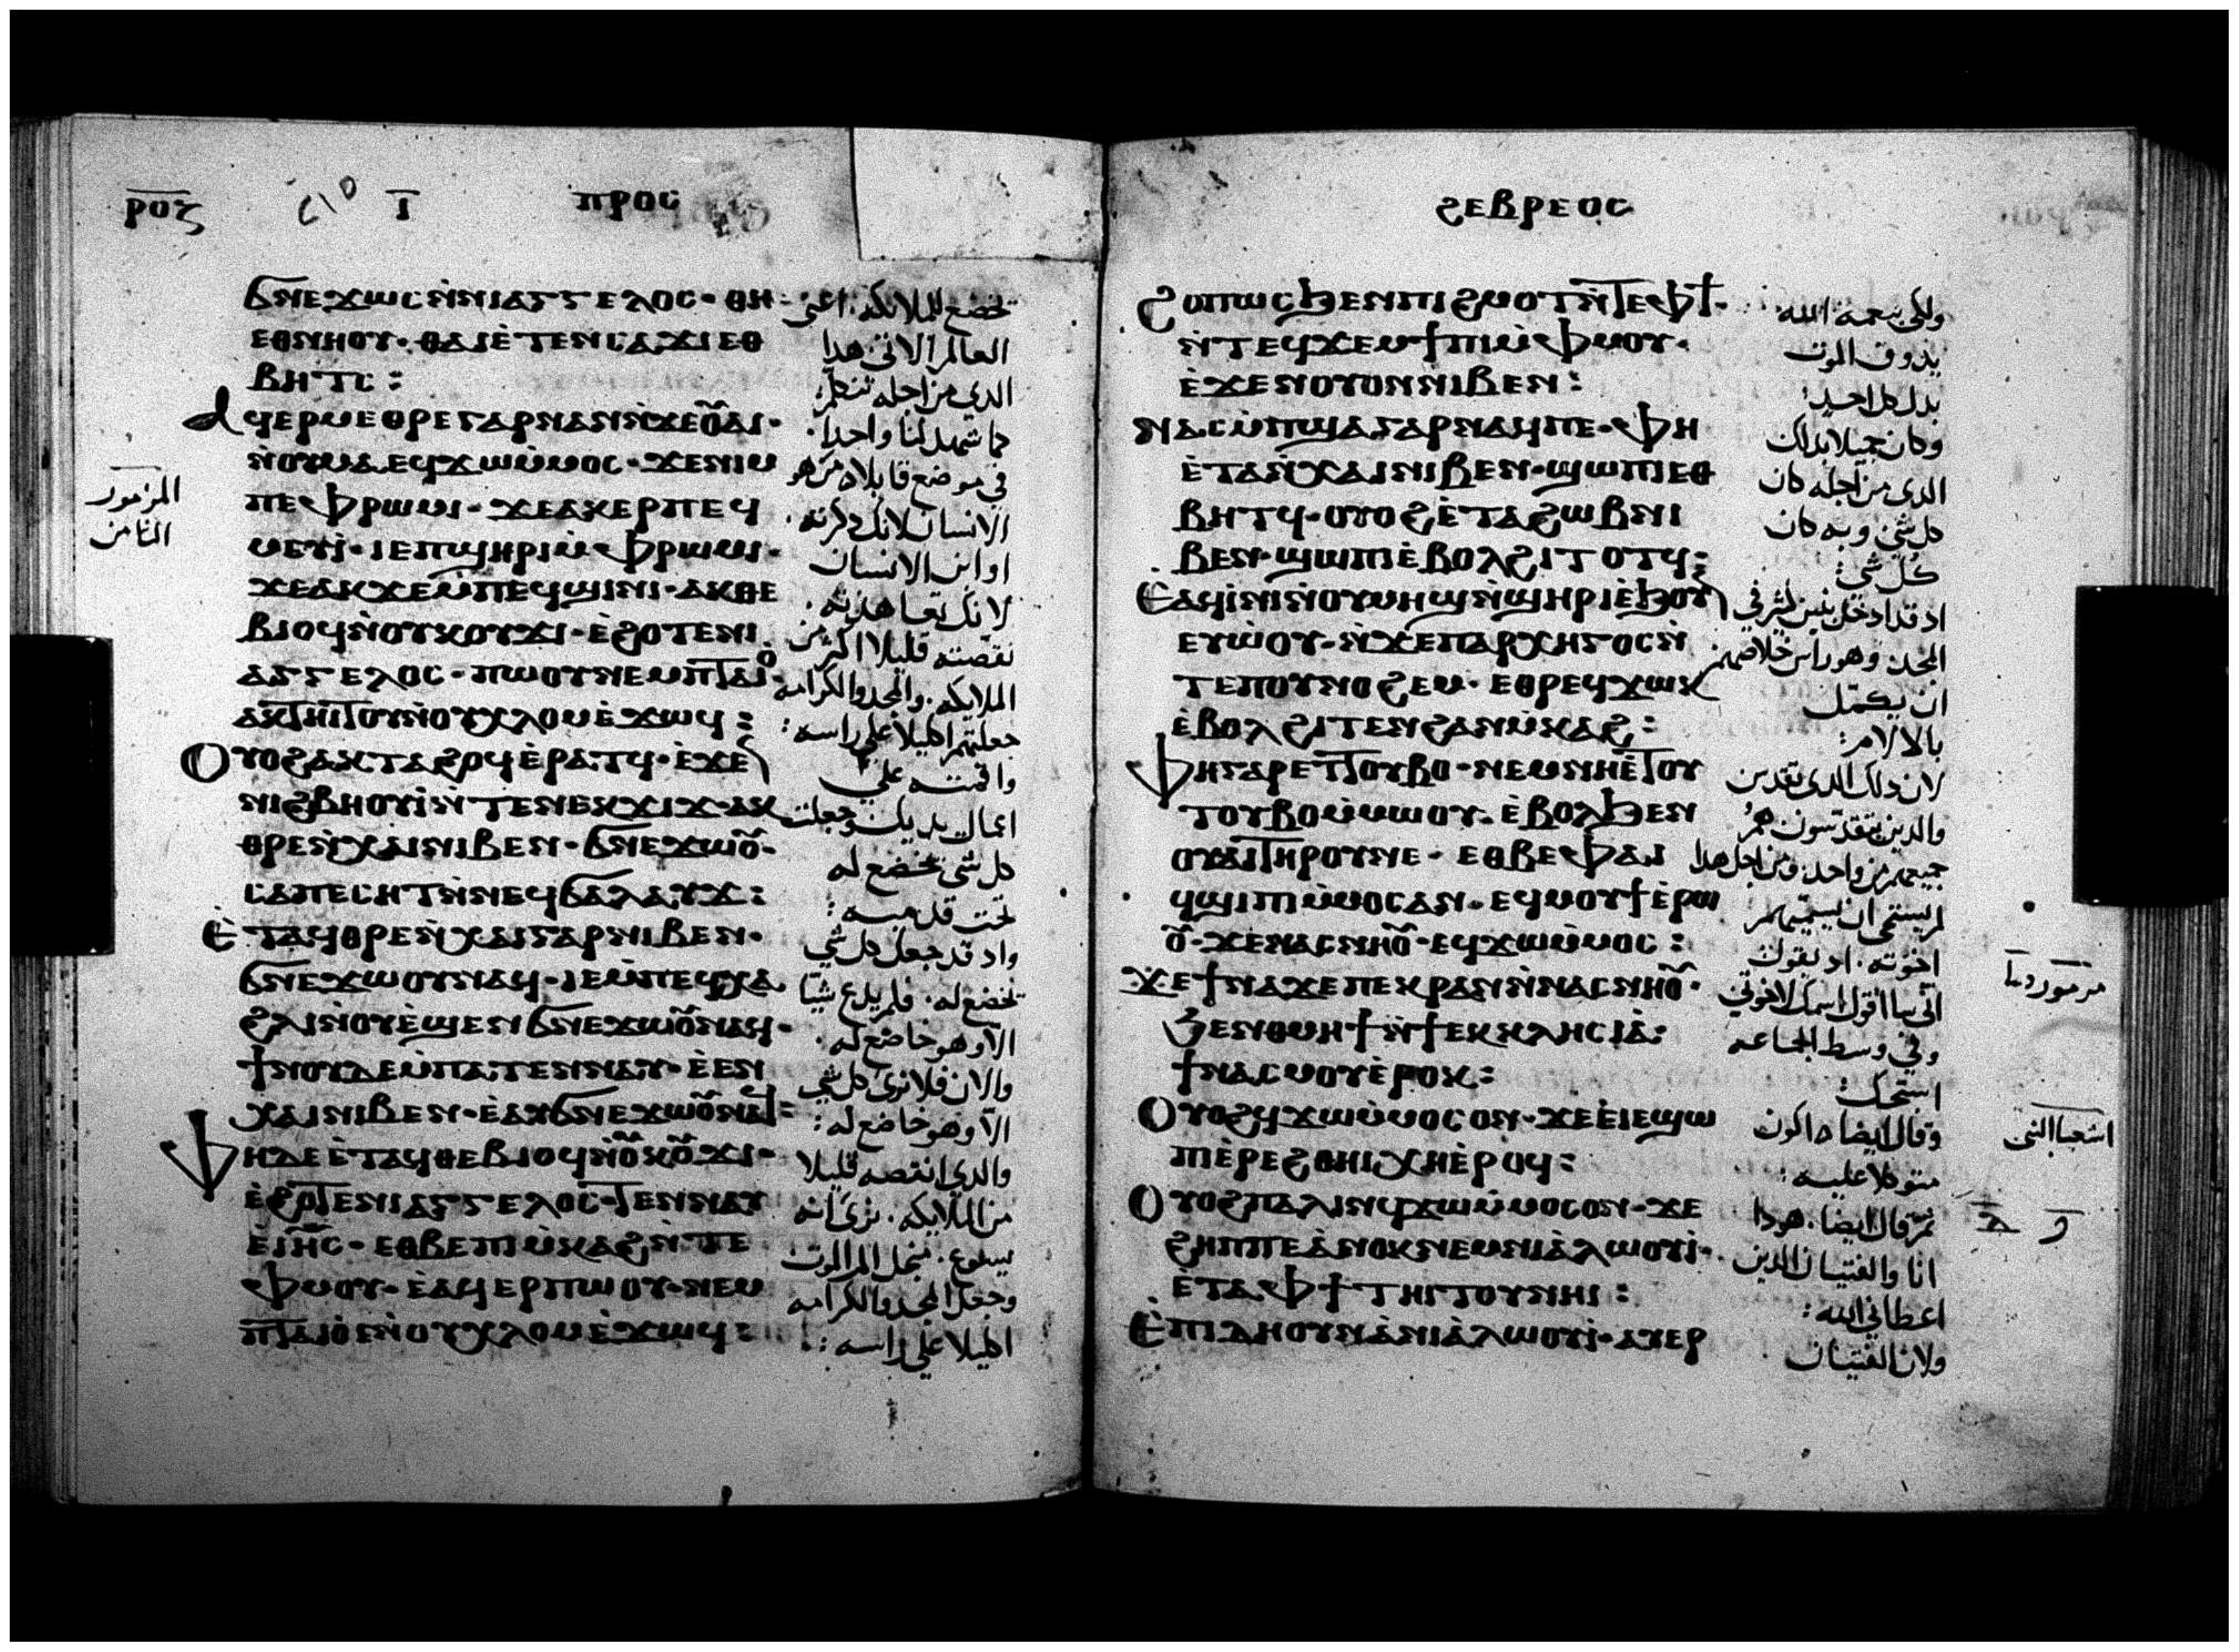 ⲣⲟⲍ
ⲓ̅
ⲡⲣⲟⲥ
ϭⲛⲉϫⲱⲥ ⲛ̀ⲛⲓⲁⲅⲅⲉⲗⲟⲥ· ⲑⲏ
ⲉⲑⲛⲏⲟⲩ· ⲑⲁⲓ ⲉ̀ⲧⲉⲛⲥⲁϫⲓ ⲉⲑ
ⲃⲏⲧⲥ:
ⲁϥⲉⲣⲙⲉⲑⲣⲉ ⲅⲁⲣ ⲛⲁⲛ ⲛ̀ϫⲉⲟⲩⲁⲓ·
ⲛ̀ⲟⲩⲙⲁ ⲉϥϫⲱ ⲙ̀ⲙⲟⲥ· ϫⲉⲛⲓⲙ
ⲡⲉ ⲫⲣⲱⲙⲓ· ϫⲉⲁⲕⲉⲣⲡⲉϥ
ⲙⲉⲩⲓ̀· ⲓⲉ ⲡϣⲏⲣⲓ ⲙ̀ⲫⲣⲱⲙⲓ·
ϫⲉⲁⲕϫⲉⲙ̀ⲡⲉϥϣⲓⲛⲓ· ⲁⲕⲑⲉ
ⲃⲓⲟϥ ⲛ̀ⲟⲩⲕⲟⲩϫⲓ· ⲉ̀ϩⲟⲧⲉ ⲛⲓ
ⲁⲅⲅⲉⲗⲟⲥ· ⲡⲱⲟⲩ ⲛⲉⲙ ⲡⲧⲁⲓⲟ̀·
ⲁⲕⲧⲏⲓⲧⲟⲩ ⲛ̀ⲟⲩⲭⲗⲟⲙ ⲉ̀ϫⲱϥ:
ⲟⲩⲟϩ ⲁⲕⲧⲁϩⲟϥ ⲉ̀ⲣⲁⲧϥ· ⲉ̀ϫⲉⲛ
ⲛⲓϩⲃⲏⲟⲩⲓ̀ ⲛ̀ⲧⲉ ⲛⲉⲕϫⲓϫ· ⲁⲕ
ⲑⲣⲉ ⲛ̀ⲭⲁⲓ ⲛⲓⲃⲉⲛ· ϭⲛⲉϫⲱⲟⲩ·
ⲥⲁⲡⲉⲥⲏⲧ ⲛ̀ⲛⲉϥϭⲁⲗⲁⲩϫ:
ⲉ̀ⲧⲁϥⲑⲣⲉ ⲛ̀ⲭⲁⲓ ⲅⲁⲣ ⲛⲓⲃⲉⲛ·
ϭⲛⲉϫⲱⲟⲩ ⲛⲁϥ· ⲓⲉ ⲙ̀ⲡⲉϥⲭⲁ
ϩⲗⲓ ⲛ̀ⲟⲩⲉ̀ϣⲉⲛ ϭⲛⲉϫⲱⲟⲩ ⲛⲁϥ·
ϯⲛⲟⲩ ⲇⲉ ⲙ̀ⲡⲁⲧⲉⲛⲛⲁⲩ· ⲉ̀ⲉⲛ
ⲭⲁⲓ ⲛⲓⲃⲉⲛ· ⲉ̀ⲁⲩϭⲛⲉϫⲱⲟⲩ ⲛⲁϥ:
ⲫⲏ ⲇⲉ ⲉ̀ⲧⲁϥⲑⲉⲃⲓⲟϥ ⲛ̀ⲟⲩⲕⲟⲩϫⲓ·
ⲉ̀ϩⲟⲧⲉ ⲛⲓⲁⲅⲅⲉⲗⲟⲥ· ⲧⲉⲛⲛⲁⲩ
ⲉ̀ⲓⲏⲥ· ⲉⲑⲃⲉ ⲡⲓⲙ̀ⲕⲁϩ ⲛ̀ⲧⲉ
ⲫⲙⲟⲩ· ⲉ̀ⲁϥⲉⲣ ⲡⲱⲟⲩ· ⲛⲉⲙ
ⲡⲧⲁⲓⲟ̀ ⲉⲛ̀ⲟⲩⲭⲗⲟⲙ ⲉ̀ϫⲱϥ:
تخضع للملايكة. اعني
العالم الاتي هدا
الدي من اجله نتكلم:
كما شهد لنا واحدا.
في موضع قايلا ه من هو
الانسان لانك دكرته.
او ابن الانسان
لانك تعاهدته.
نقصته قليلا اكثر من
الملايكه. والمجد والكرامه
جعلتهم اكليلا علي راسه:
واقمته علي
اعمال يديك وجعلت
كل شي تخضع له
تحت قدميه:
واد قد جعل كل شي
تخضع له. فلم يدع شيا
الا وهو خاضع له.
والان فلا نري كل شي
الا وهو خاضع له:
والدي انتقصه قليلا
من الملايكه. نري انه
يسوع. من اجل الم الموت
وجعل المجد والكرامه
اكليلا علي راسه:
المزمور
الثامن
ϩⲉⲃⲣⲉⲟⲥ
ϩⲟⲡⲱⲥ ϧⲉⲛ ⲡⲓϩⲙⲟⲧ ⲛ̀ⲧⲉ ⲫϯ·
ⲛ̀ⲧⲉϥϫⲉⲙϯⲡⲓ ⲙ̀ⲫⲙⲟⲩ·
ⲉ̀ϫⲉⲛ ⲟⲩⲟⲛ ⲛⲓⲃⲉⲛ:
ⲛⲁⲥⲙ̀ⲡϣⲁ ⲅⲁⲣ ⲛⲁϥ ⲡⲉ· ⲫⲏ
ⲉ̀ⲧⲁ ⲛ̀ⲭⲁⲓ ⲛⲓⲃⲉⲛ· ϣⲱⲡⲓ ⲉⲑ
ⲃⲏⲧϥ· ⲟⲩⲟϩ ⲉ̀ⲧⲁ ϩⲱⲃ ⲛⲓ
ⲃⲉⲛ· ϣⲱⲡⲓ ⲉ̀ⲃⲟⲗ ϩⲓⲧⲟⲧϥ:
ⲉ̀ⲁϥⲓ̀ⲛⲓ ⲛ̀ⲟⲩⲙⲏϣ ⲛ̀ϣⲏⲣⲓ ⲉ̀ϧⲟⲩⲛ
ⲉⲩⲱ̀ⲟⲩ· ⲛ̀ϫⲉ ⲡⲁⲣⲭⲏⲅⲟⲥ ⲛ̀
ⲧⲉ ⲡⲟⲩⲛⲟϩⲉⲙ· ⲉⲑⲣⲉϥϫⲱⲕ
ⲉ̀ⲃⲟⲗ ϩⲓⲧⲉⲛ ϩⲁⲛⲙ̀ⲕⲁϩ:
ⲫⲏ ⲅⲁⲣ ⲉⲧⲧⲟⲩⲃⲟ· ⲛⲉⲙ ⲛⲏ ⲉ̀ⲧⲟⲩ
ⲧⲟⲩⲃⲟ ⲙ̀ⲙⲱⲟⲩ· ⲉ̀ⲃⲟⲗ ϧⲉⲛ
ⲟⲩⲁⲓ ⲧⲏⲣⲟⲩ ⲛⲉ· ⲉⲑⲃⲉ ⲫⲁⲓ
ϥϣⲓⲡⲓ ⲙ̀ⲙⲟⲥ ⲁⲛ· ⲉϥⲙⲟⲩϯ ⲉ̀ⲣⲱ
ⲟⲩ· ϫⲉ ⲛⲁⲥⲛⲏⲟⲩ· ⲉϥϫⲱ ⲙ̀ⲙⲟⲥ:
ϫⲉ ϯⲛⲁϫⲉ ⲡⲉⲕⲣⲁⲛ ⲛ̀ⲛⲁⲥⲛⲏⲟⲩ·
ϧⲉⲛ ⲑⲙⲏϯ ⲛ̀ϯⲉⲕⲕⲗⲏⲥⲓⲁ̀:
ϯⲛⲁⲥⲙⲟⲩ ⲉ̀ⲣⲟⲕ:
ⲟⲩⲟϩ ϥϫⲱ ⲙ̀ⲙⲟⲥ ⲟⲛ· ϫⲉ ⲉ̀ⲓⲉϣⲱ
ⲡⲓ ⲉ̀ⲣⲉ ϩⲑⲏⲓ ⲭⲏ ⲉ̀ⲣⲟϥ:
ⲟⲩⲟϩ ⲡⲁⲗⲓⲛ ϥϫⲱ ⲙ̀ⲙⲟⲥ ⲟⲛ· ϫⲉ
ϩⲏⲡⲡⲉ ⲁ̀ⲛⲟⲕ ⲛⲉⲙ ⲛⲓⲁ̀ⲗⲱⲟⲩⲓ̀·
ⲉ̀ⲧⲁ ⲫϯ ⲧⲏⲓⲧⲟⲩ ⲛⲏⲓ:
ⲉ̀ⲡⲓⲇⲏ ⲟⲩⲛ ⲁ̀ ⲛⲓⲁ̀ⲗⲱⲟⲩⲓ̀· ⲁⲩⲉⲣ
ولكي بنعمة الله
يدوق الموت
بدل كل احد:
وكان جميلا بدلك
الدي من اجله كان
كل شي وبه كان
كل شي:
اد قد ادخل بنين كثير في
المجد. وهو راس خلاصهم
ان يكمل
بالالام:
لان دلك الدي تقدس
والدين يتقدسون هم
جميعهم من واحد. ومن اجل هدا
لم يستحي ان يسميهم
اخوته. اد يقول
اني سااقول اسمك لاخوتي
وفي وسط الجماعه
استحك:
وقال ايضا ه اكون
متوكلا عليه:
ثم قال ايضا. هودا
انا والفتيان الدين
اعطاني الله:
ولان الفتيان
اشعيا النبي